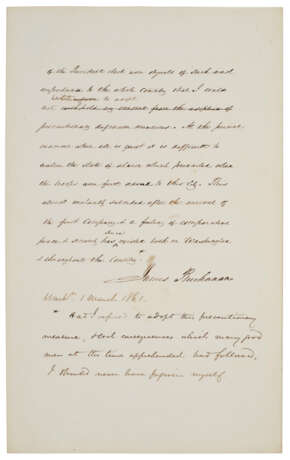 of the President elect were objects of such and
importance to the whole country that I could
refuse to adopt
not withhold my consent from the adoption of
precautionary defensive measures. At the present
moment when all is quiet it is difficult to
realize the state of alarm which prevailed when
the troops were first ordered to this City. This
almost instantly subsided after the arrival of
the first company & a feeling of comparative
since
peace & security has existed both in Washington
& throughout the country. *
James Buchanan
Wash: 1 March 1861.
* Had I refused to adopt this precautionary
measure, & such consequences which many good
men at the time apprehended had followed,
I should never have forgiven myself